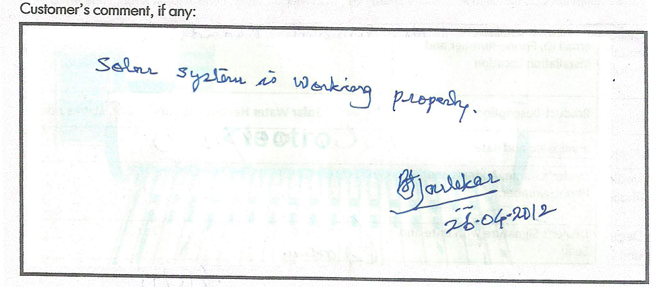 Customer's comment, if any:
Solar system is working properly.
28-04-2012